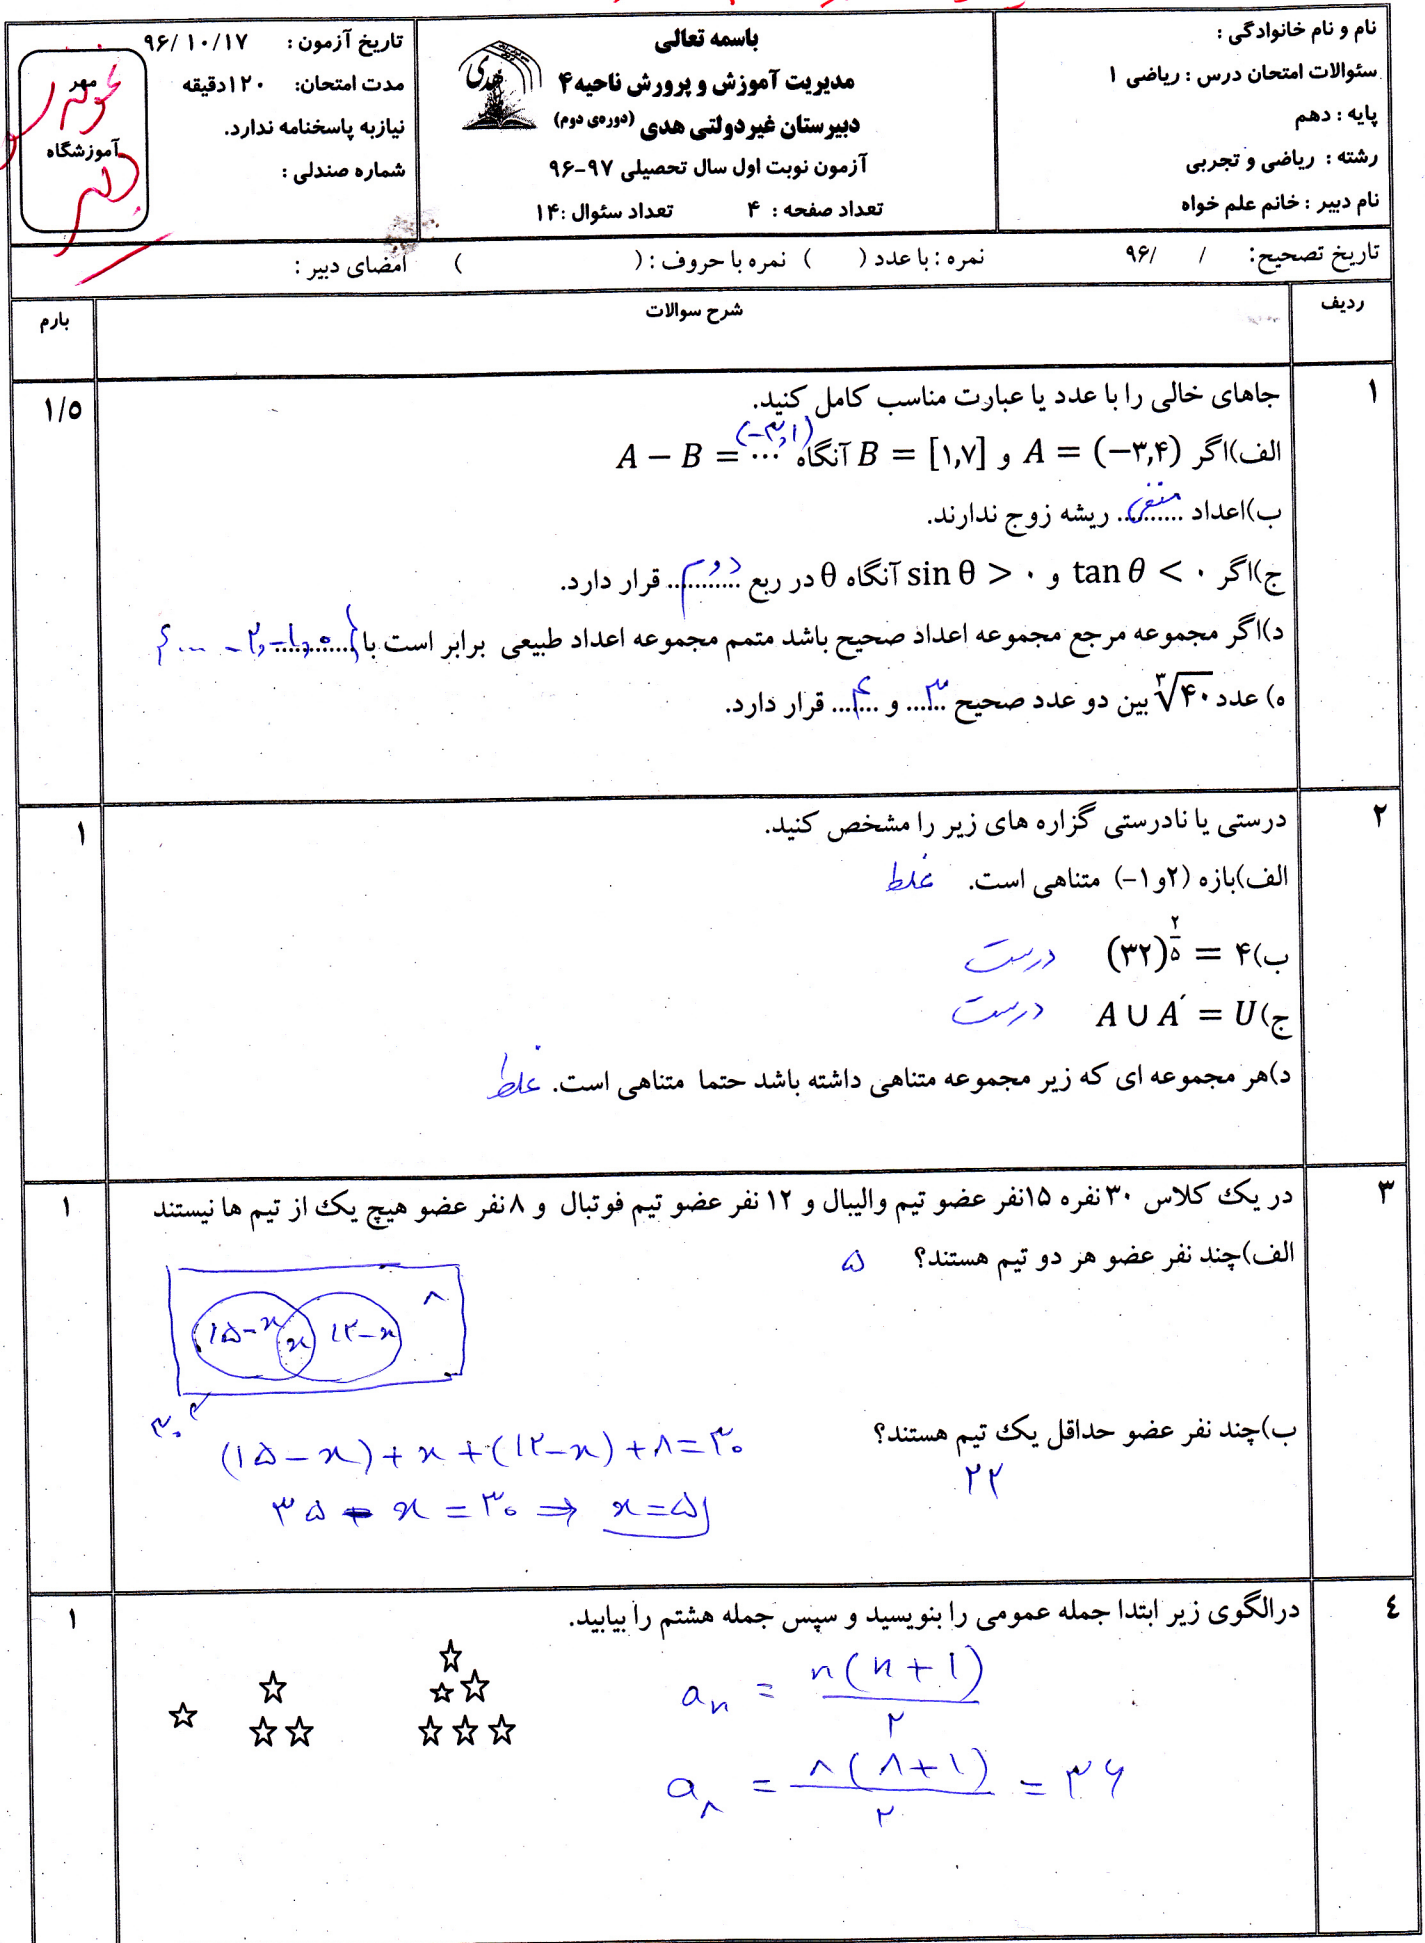 نام و نام خانوادگی :
سئوالات امتحان درس : ریاضی ۱
پایه : دهم
رشته : ریاضی و تجربی
نام دبیر : خانم علم خواه
باسمه تعالی
مدیریت آموزش و پرورش ناحیه۴
دبیرستان غیردولتی هدی (دوره‌ی دوم)
آزمون نوبت اول سال تحصیلی ۹۷-۹۶
تعداد صفحه : ۴ تعداد سئوال :۱۴
هدی
تاریخ آزمون : ۹۶/۱۰/۱۷
مدت امتحان: ۱۲۰دقیقه
نیازبه پاسخنامه ندارد.
شماره صندلی :
مهر
آموزشگاه
تاریخ تصحیح: / /۹۶ نمره : با عدد ( ) نمره با حروف : ( ) امضای دبیر :
ردیف شرح سوالات بارم
۱ جاهای خالی را با عدد یا عبارت مناسب کامل کنید. ۱/۵
الف)اگر A = (−۳,۴) و B = [۱,۷] آنگاه A − B = ... (-۳,۱)
ب)اعداد ..منفی.. ریشه زوج ندارند.
ج)اگر tan θ < ۰ و sin θ > ۰ آنگاه θ در ربع ..دوم.. قرار دارد.
د)اگر مجموعه مرجع مجموعه اعداد صحیح باشد متمم مجموعه اعداد طبیعی برابر است با {... -۲,-۱,۰}
ه) عدد ∛۴۰ بین دو عدد صحیح ..۳.. و ..۴.. قرار دارد.
۲ درستی یا نادرستی گزاره های زیر را مشخص کنید. ۱
الف)بازه (۲و۱-) متناهی است. غلط
ب) (۳۲)^(۲/۵) = ۴ درست
ج) A ∪ A′ = U درست
د)هر مجموعه ای که زیر مجموعه متناهی داشته باشد حتما متناهی است. غلط
۳ در یک کلاس ۳۰ نفره ۱۵نفر عضو تیم والیبال و ۱۲ نفر عضو تیم فوتبال و ۸ نفر عضو هیچ یک از تیم ها نیستند ۱
الف)چند نفر عضو هر دو تیم هستند؟ ۵
۱۵-x x ۱۲-x ۸
۳۰
ب)چند نفر عضو حداقل یک تیم هستند؟
۲۲
(۱۵-x)+x+(۱۲-x)+۸=۳۰
۳۵ - x = ۳۰ ⇒ x=۵
٤ درالگوی زیر ابتدا جمله عمومی را بنویسید و سپس جمله هشتم را بیابید. ۱
aₙ = n(n+1)/۲
a₈ = ۸(۸+۱)/۲ = ۳۶